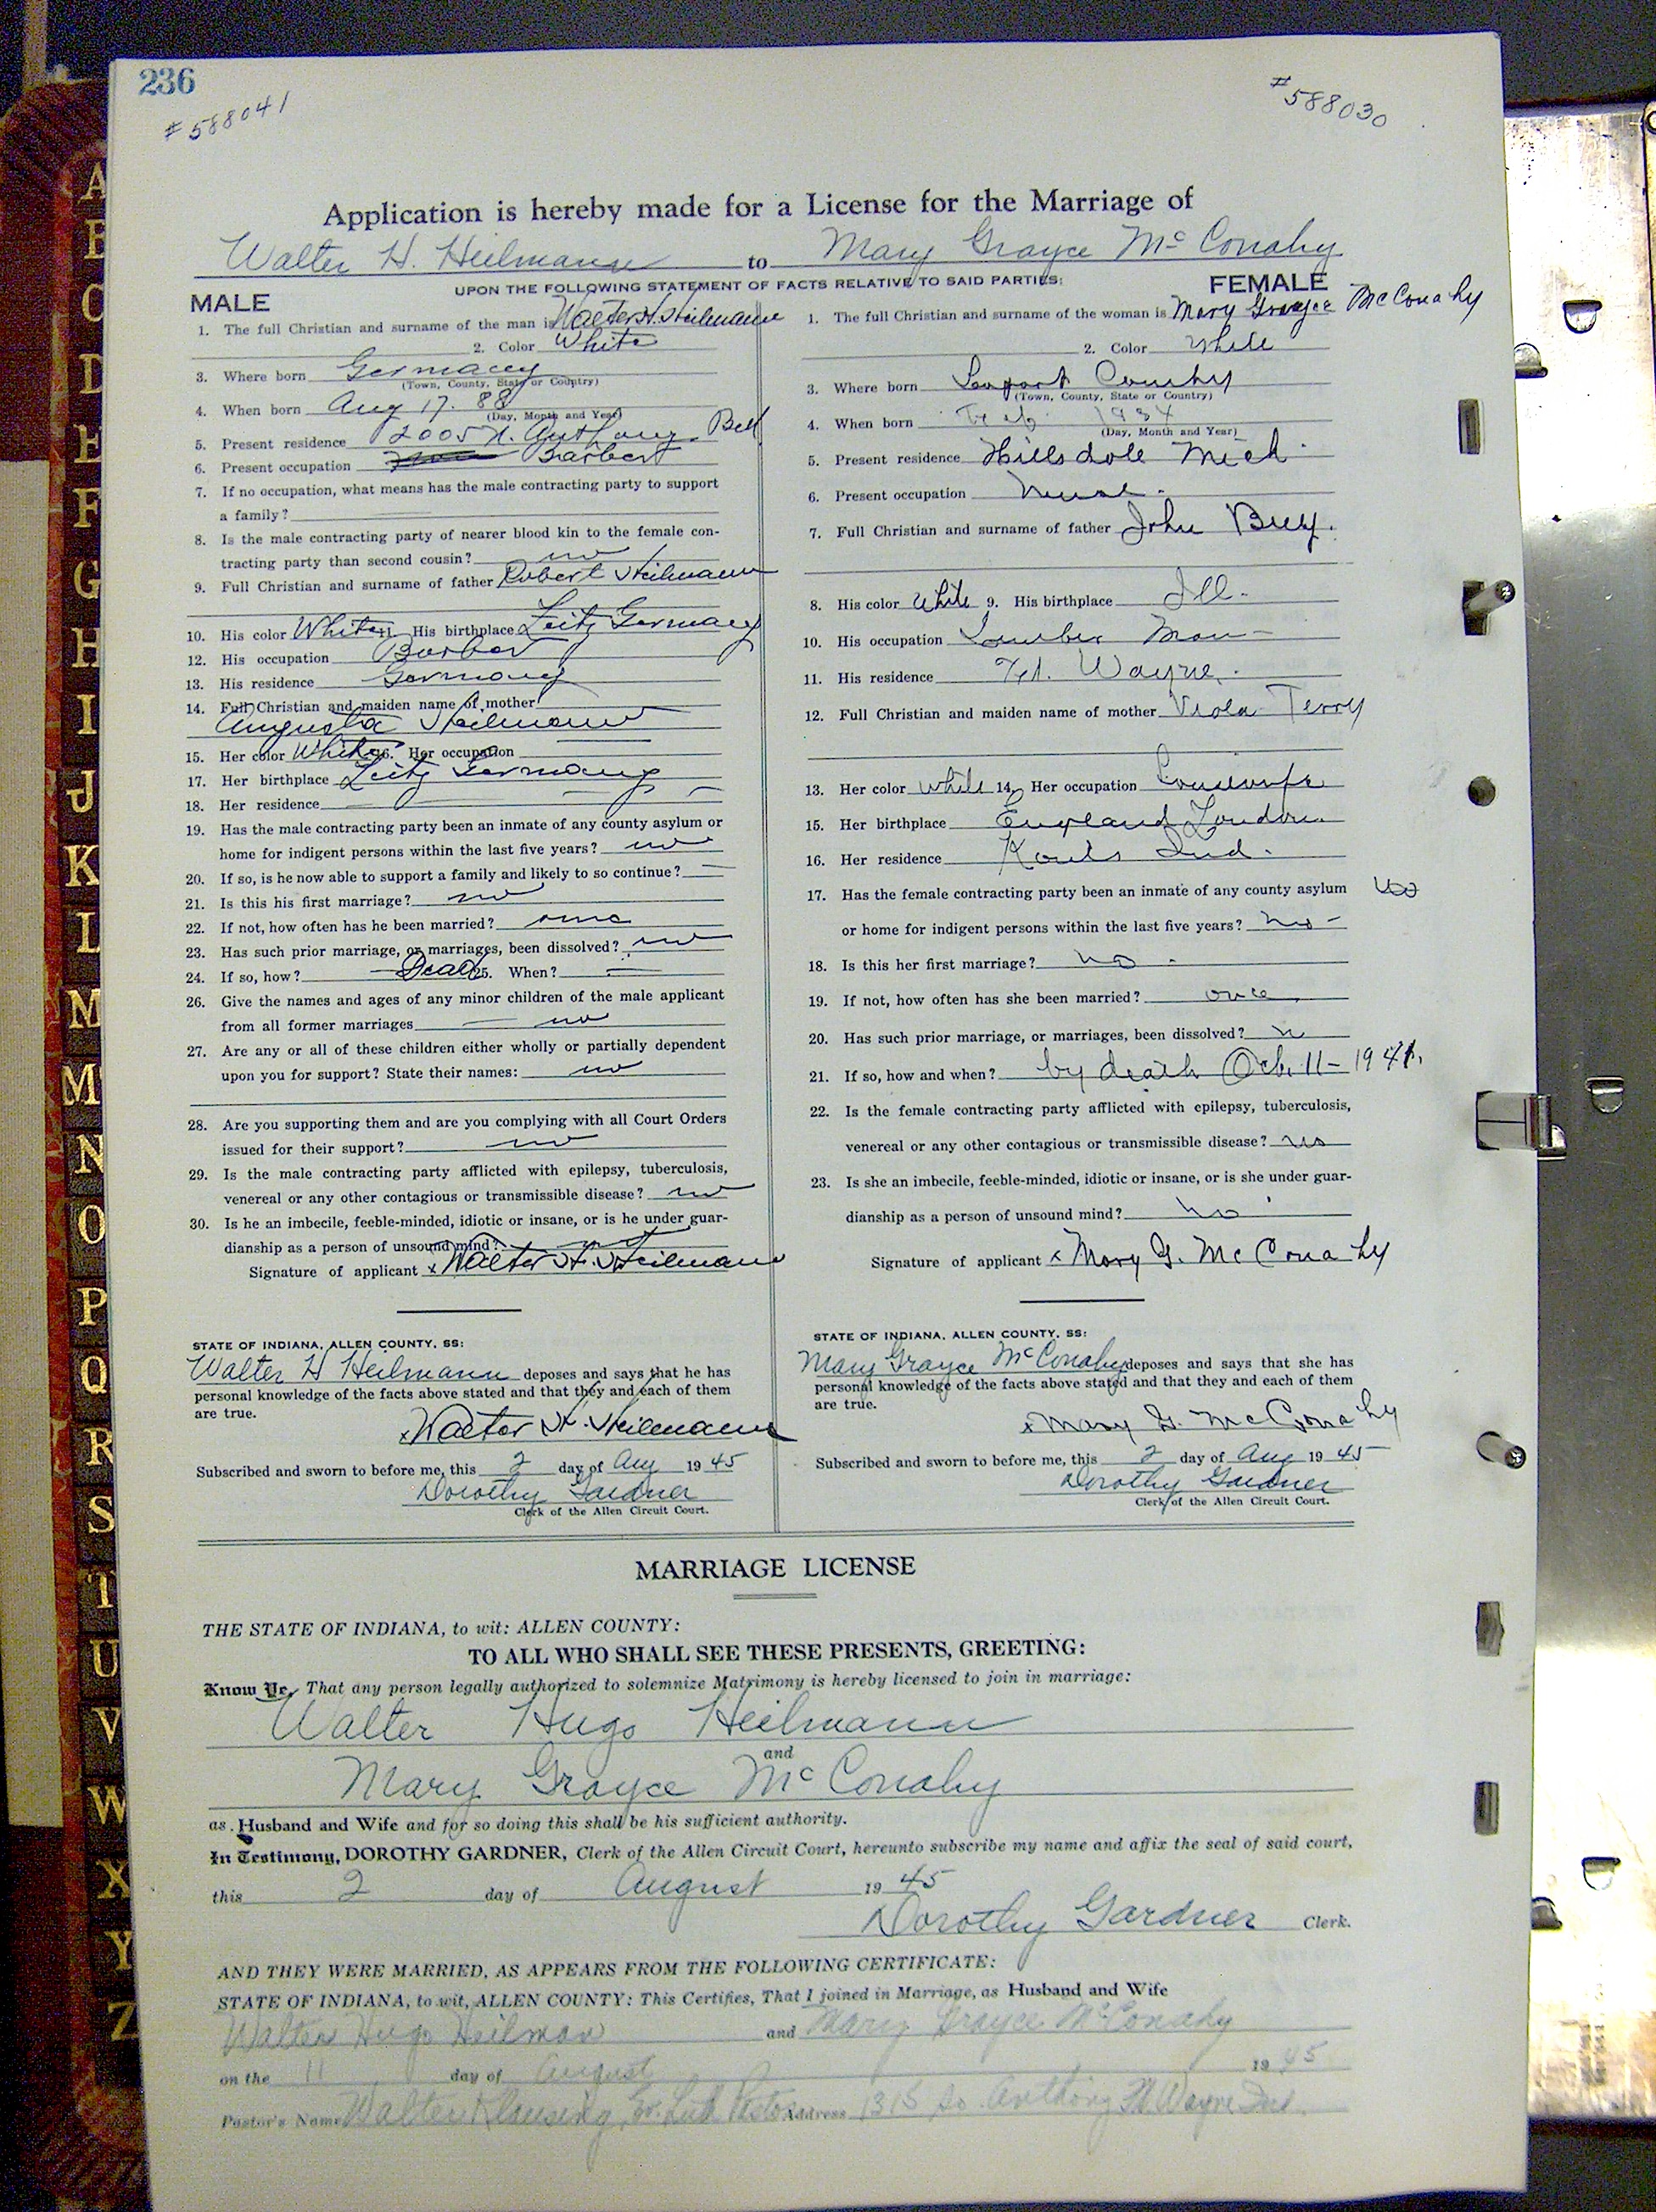 236
# 588041
# 588030
Application is hereby made for a License for the Marriage of
Walter H. Heilmann to Mary Grayce McConahy
UPON THE FOLLOWING STATEMENT OF FACTS RELATIVE TO SAID PARTIES:
MALE
1. The full Christian and surname of the man is Walter H. Heilmann
2. Color White
3. Where born Germany
(Town, County, State or Country)
4. When born Aug 17. 88
(Day, Month and Year)
5. Present residence 2005 N. Anthony
6. Present occupation Barber
7. If no occupation, what means has the male contracting party to support
a family?
8. Is the male contracting party of nearer blood kin to the female con-
tracting party than second cousin? no
9. Full Christian and surname of father Robert Heilmann
10. His color White 11. His birthplace Leitz Germany
12. His occupation Barber
13. His residence Germany
14. Full Christian and maiden name of mother
Augusta Heilmann
15. Her color White 16. Her occupation
17. Her birthplace Leitz Germany
18. Her residence
19. Has the male contracting party been an inmate of any county asylum or
home for indigent persons within the last five years? no
20. If so, is he now able to support a family and likely to so continue?
21. Is this his first marriage? no
22. If not, how often has he been married? once
23. Has such prior marriage, or marriages, been dissolved? no
24. If so, how? Dead 25. When?
26. Give the names and ages of any minor children of the male applicant
from all former marriages no
27. Are any or all of these children either wholly or partially dependent
upon you for support? State their names: no
28. Are you supporting them and are you complying with all Court Orders
issued for their support? no
29. Is the male contracting party afflicted with epilepsy, tuberculosis,
venereal or any other contagious or transmissible disease? no
30. Is he an imbecile, feeble-minded, idiotic or insane, or is he under guar-
dianship as a person of unsound mind?
Signature of applicant x Walter H. Heilmann
STATE OF INDIANA, ALLEN COUNTY, SS:
Walter H Heilmann deposes and says that he has
personal knowledge of the facts above stated and that they and each of them
are true.
x Walter H. Heilmann
Subscribed and sworn to before me, this 2 day of Aug 19 45
Dorothy Gardner
Clerk of the Allen Circuit Court.
FEMALE
1. The full Christian and surname of the woman is Mary Grayce McConahy
2. Color White
3. Where born County
(Town, County, State or Country)
4. When born Feb
(Day, Month and Year)
5. Present residence Hillsdale Mich
6. Present occupation Nurse
7. Full Christian and surname of father John
8. His color White 9. His birthplace Ill.
10. His occupation Lumber Man
11. His residence Ft. Wayne.
12. Full Christian and maiden name of mother Viola Terry
13. Her color White 14. Her occupation Housewife
15. Her birthplace England London
16. Her residence Kouts Ind.
17. Has the female contracting party been an inmate of any county asylum no
or home for indigent persons within the last five years? no
18. Is this her first marriage? no
19. If not, how often has she been married? once
20. Has such prior marriage, or marriages, been dissolved?
21. If so, how and when? by death Oct. 11 - 1941.
22. Is the female contracting party afflicted with epilepsy, tuberculosis,
venereal or any other contagious or transmissible disease? no
23. Is she an imbecile, feeble-minded, idiotic or insane, or is she under guar-
dianship as a person of unsound mind? no
Signature of applicant x Mary G. McConahy
STATE OF INDIANA, ALLEN COUNTY, SS:
Mary Grayce McConahy deposes and says that she has
personal knowledge of the facts above stated and that they and each of them
are true.
x Mary G. McConahy
Subscribed and sworn to before me, this 2 day of Aug 19 45
Dorothy Gardner
Clerk of the Allen Circuit Court.
MARRIAGE LICENSE
THE STATE OF INDIANA, to wit: ALLEN COUNTY:
TO ALL WHO SHALL SEE THESE PRESENTS, GREETING:
Know Ye, That any person legally authorized to solemnize Matrimony is hereby licensed to join in marriage:
Walter Hugo Heilmann
and
Mary Grayce McConahy
as Husband and Wife and for so doing this shall be his sufficient authority.
In Testimony, DOROTHY GARDNER, Clerk of the Allen Circuit Court, hereunto subscribe my name and affix the seal of said court,
this 2 day of August 19 45
Dorothy Gardner Clerk.
AND THEY WERE MARRIED, AS APPEARS FROM THE FOLLOWING CERTIFICATE:
STATE OF INDIANA, to wit, ALLEN COUNTY: This Certifies, That I joined in Marriage, as Husband and Wife
Walter Hugo Heilman and Mary Grayce McConahy
on the 11 day of August 19 45
Pastor's Name Walter Klausing, Ev. Luth Pastor Address 1315 So. Anthony Ft. Wayne Ind.
A
B
C
D
E
F
G
H
I
J
K
L
M
M
N
O
P
Q
R
S
T
U
V
W
X
Y
Z